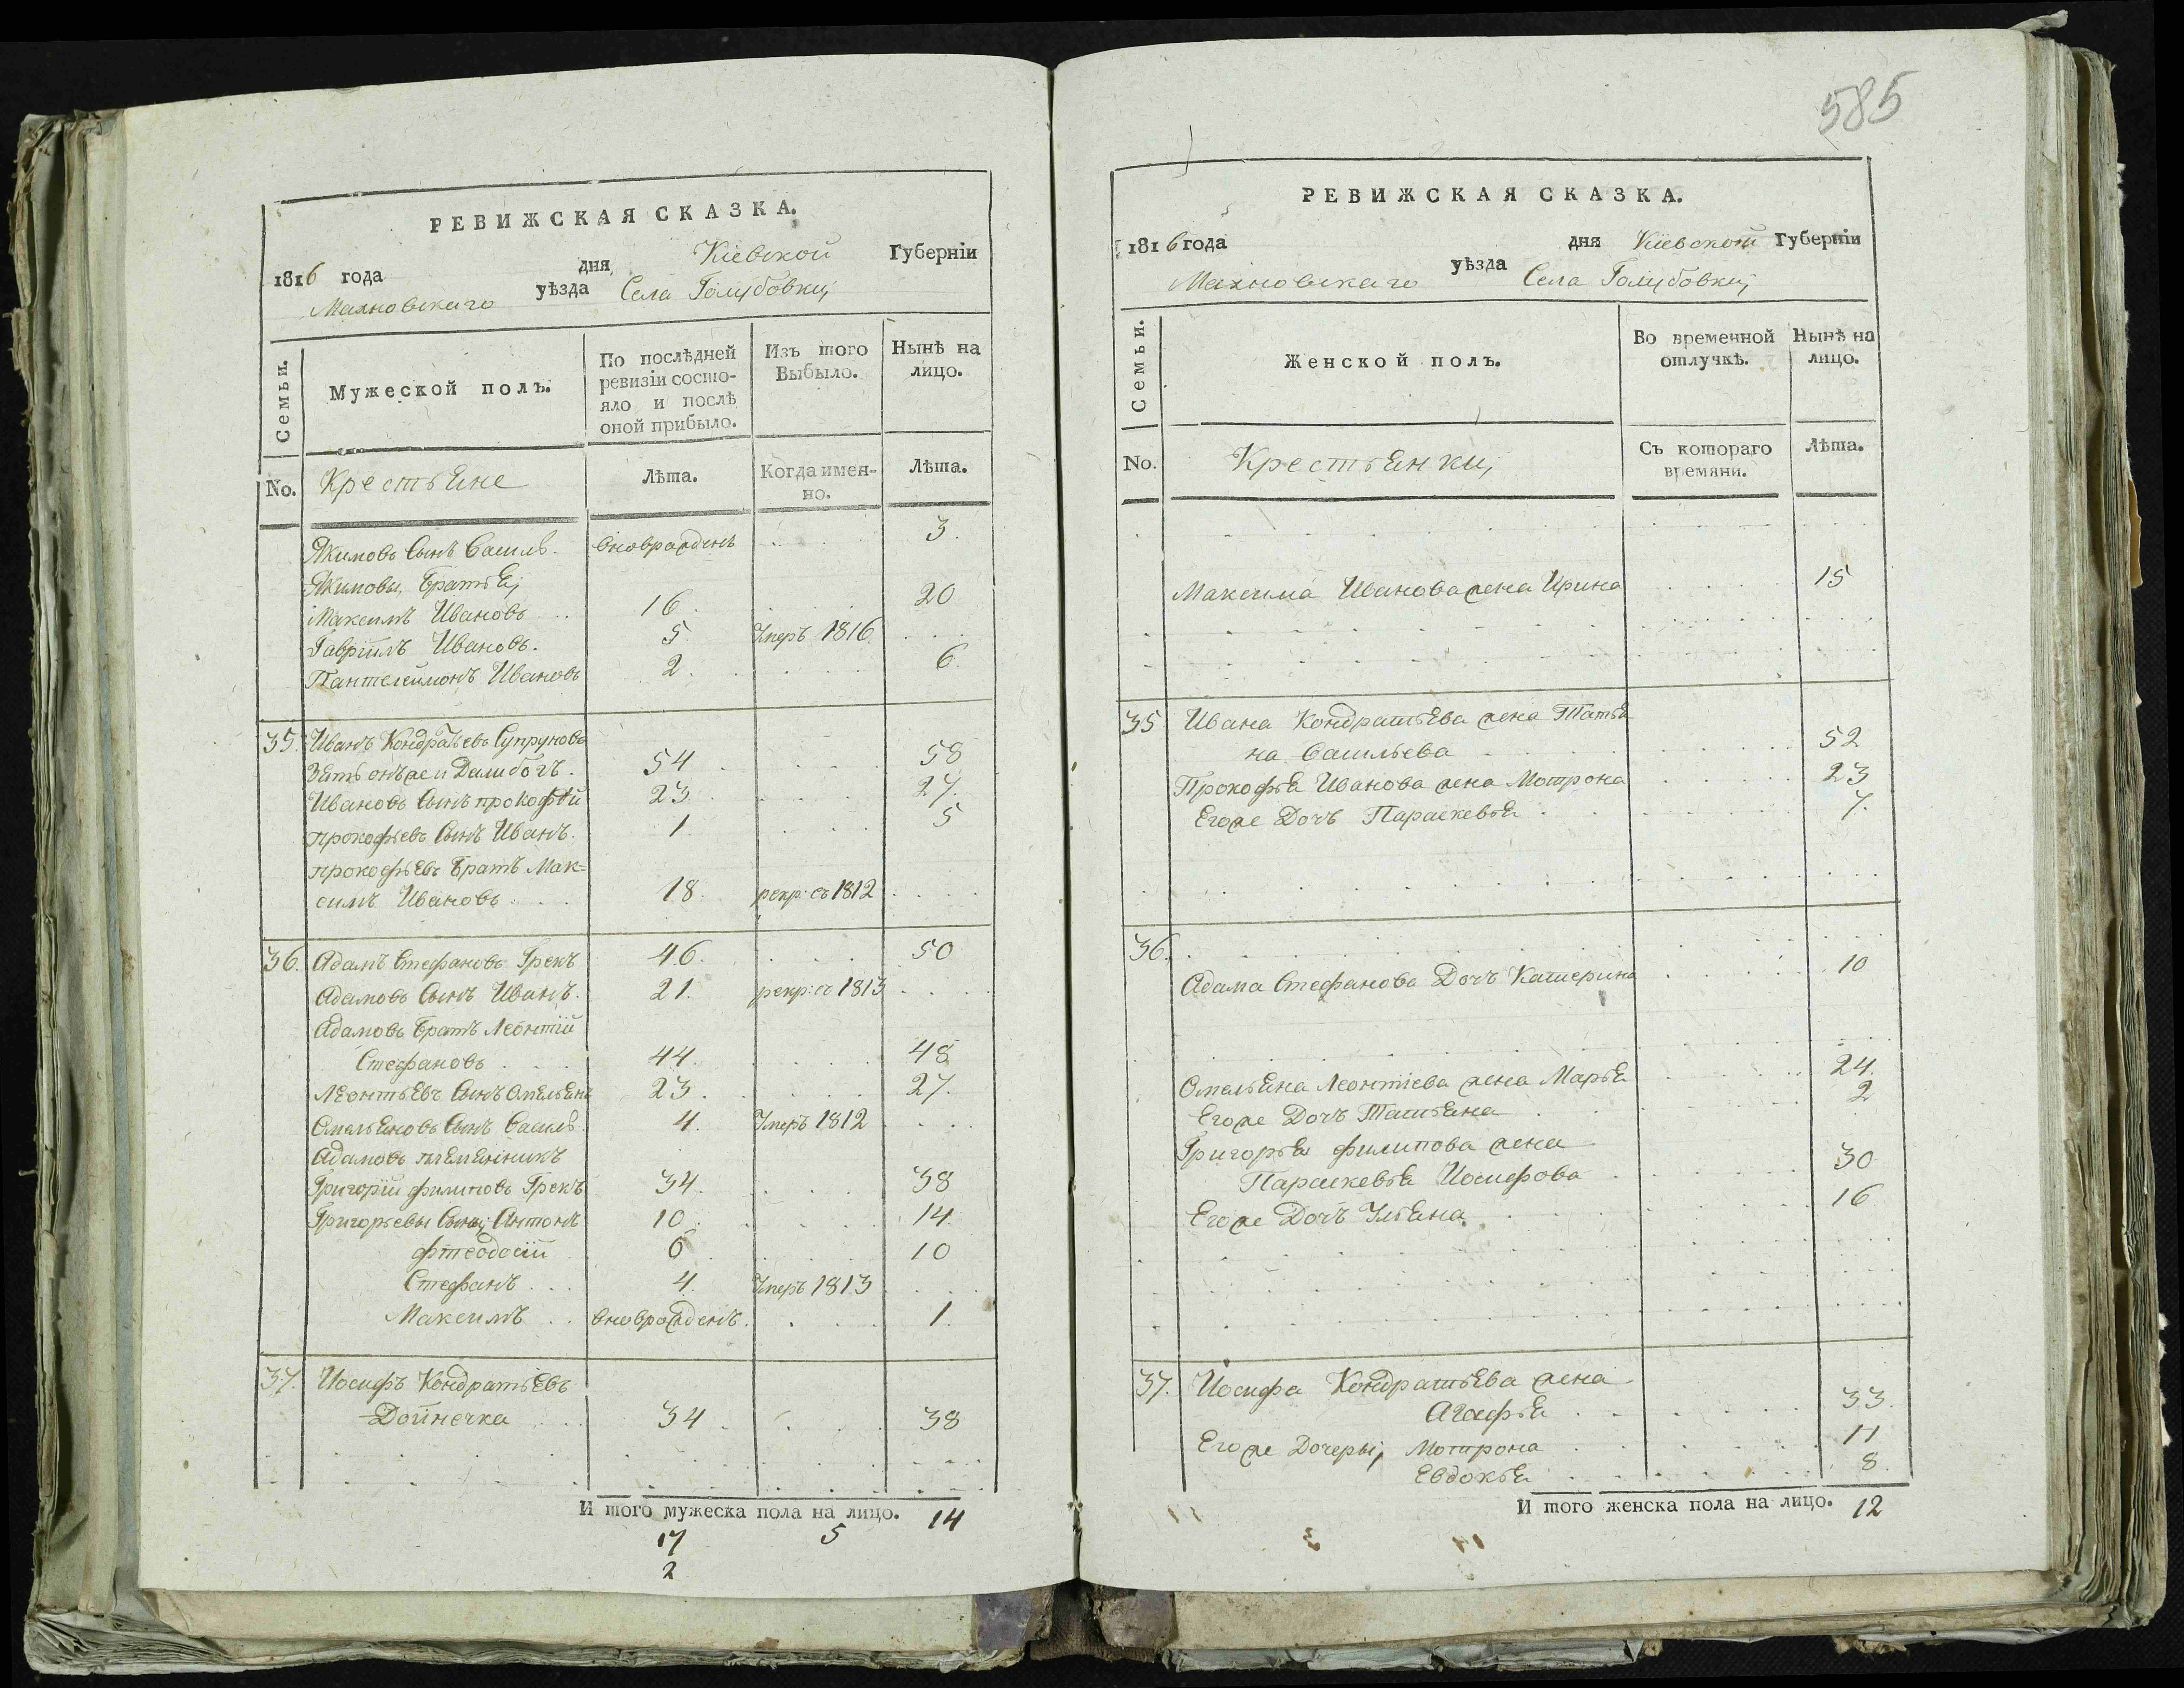 585
РЕВИЖСКАЯ СКАЗКА.
1816 года дня Кіевской Губерніи
Махновскаго уѣзда Села Голубовки,
Семьи. Мужеской полъ. По послѣдней ревизіи состояло и послѣ оной прибыло. Изъ того Выбыло. Нынѣ на лицо.
No. Крестьяне Лѣта. Когда именно. Лѣта.
Якимовъ Сынъ Василь вноврожденъ 3.
Якимовы братья,
Максимъ Ивановъ 16. 20
Гавріилъ Ивановъ. 5 Умеръ 1816
Пантелеимонъ Ивановъ 2. 6.
35. Иванъ Кондратьевъ Супруновъ
Зять онъ же и Далибогъ. 54 58
Ивановъ Сынъ прокофѣй 23 27.
прокофьевъ Сынъ Иванъ. 1 5
прокофьевъ братъ Мак=
симъ Ивановъ 18. рекр: съ 1812
36. Адамъ Стефановъ Грекъ 46. 50
Адамовъ Сынъ Иванъ. 21. рекр: съ 1813
Адамовъ братъ Леонтій
Стефановъ 44. 48
Леонтьевъ Сынъ Омельянъ 23. 27.
Омельяновъ Сынъ Василь 4. Умеръ 1812
Адамовъ племянникъ
Григорій филиповъ Грекъ 34. 38
Григорьевы Сыны, Антонъ 10. 14
фтеодосій 6 10
Стефанъ 4 Умеръ 1813
Максимъ вноврожденъ. 1.
37. Иосифъ Кондратьевъ
Дойнечка 34. 38
И того мужеска пола на лицо. 14
17 5
2
РЕВИЖСКАЯ СКАЗКА.
1816 года дня Кіевской Губерніи
Махновскаго уѣзда Села Голубовки,
Семьи. Женской полъ. Во временной отлучкѣ. Нынѣ на лицо.
No. Крестьянки, Съ котораго времяни. Лѣта.
Максима Иванова жена Ирина 15
35 Ивана Кондратьева жена Татья
на Васильева 52
Прокофья Иванова жена Мотрона 23
Егоже Дочъ Параскевья 7.
36.
Адама Стефанова Дочъ Катерина 10
Омельяна Леонтіева жена Марья 24.
Егоже Дочъ Татьяна 2
Григорья филипова жена
Параскевья Иосифова 30
Егоже Дочъ Ульяна. 16
37. Иосифа Кондратьева жена
Агафья 33.
Егоже Дочеры, Мотрона 11
Евдокья 8.
И того женска пола на лицо. 12